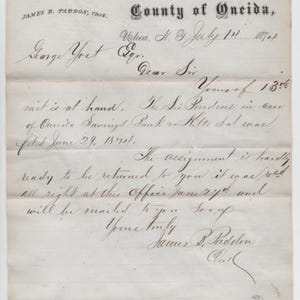 JAMES B. PADDON, Clerk.
County of Oneida,
Utica, N. Y. July 14 1874
George Yost Esqr.
Dear Sir
Yours of 13th
inst is at hand. The Lis Pendens in case
of Oneida Savings Bank vs et al was
filed June 29, 1874.
The assignment is
ready to be returned to you it was
all right at this Office June 27th and
will be mailed to you
Yours truly
James B. Paddon
Clerk